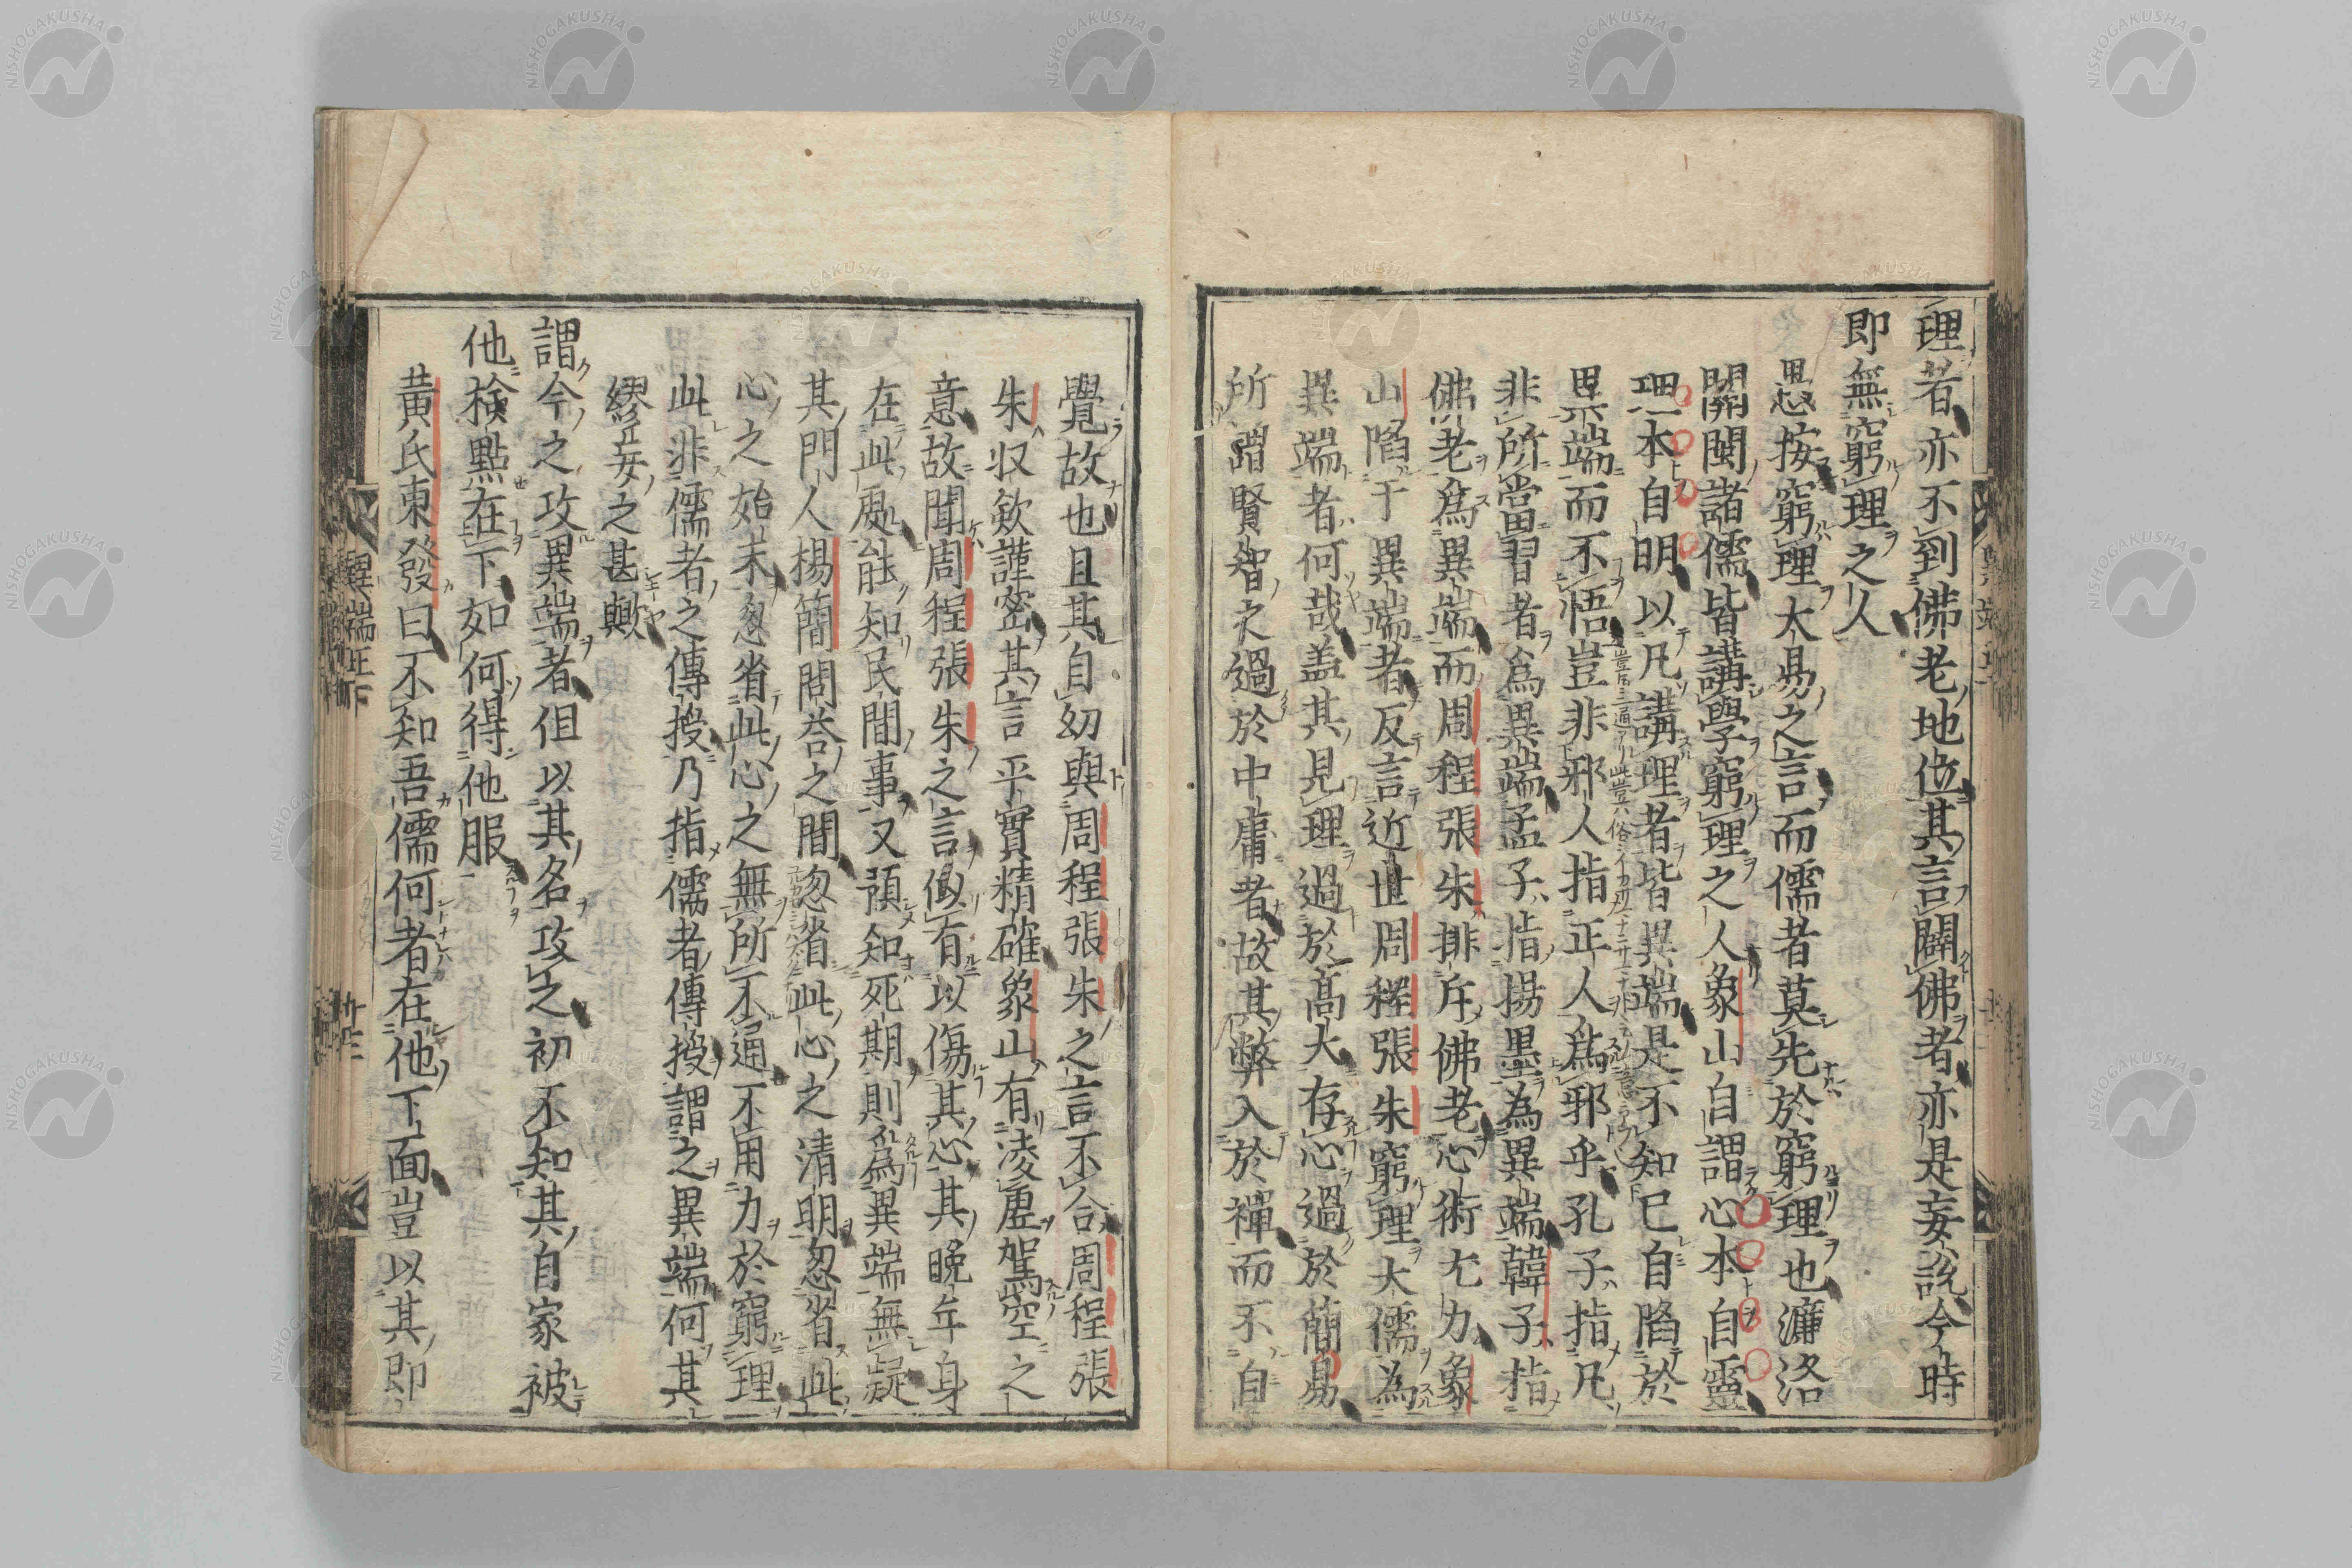 理者亦不到佛老地位其言闢佛者亦是妄說今時
即無窮理之人
愚按窮理大易之言而儒者莫先於窮理也濂洛
關閩諸儒皆講學窮理之人象山自謂心本自靈
理本自明以凡講理者皆異端是不知已自陷於
異端而不悟豈非邪人指正人為邪乎孔子指凡
非所當習者為異端孟子指楊墨為異端韓子指
佛老為異端而周程張朱排斥佛老心術尤力象
山陷于異端者反言近世周程張朱窮理大儒為
異端者何哉盖其見理過於高大存心過於簡易
所謂賢智之過於中庸者故其弊入於禪而不自
覺故也且其自幼與周程張朱之言不合周程張
朱収斂謹密其言平實精確象山有淩虛駕空之
意故聞周程張朱之言似有以傷其心其晚年身
在此處能知民間事又預知死期則為異端無疑
其門人楊簡問答之間忽省此心之清明忽省此
心之始末忽省此心之無所不通不用力於窮理
此非儒者之傳授乃指儒者傳授謂之異端何其
繆妄之甚歟
謂今之攻異端者但以其名攻之初不知其自家被
他檢點在下如何得他服
黃氏東發曰不知吾儒何者在他下面豈以其即
異端正下